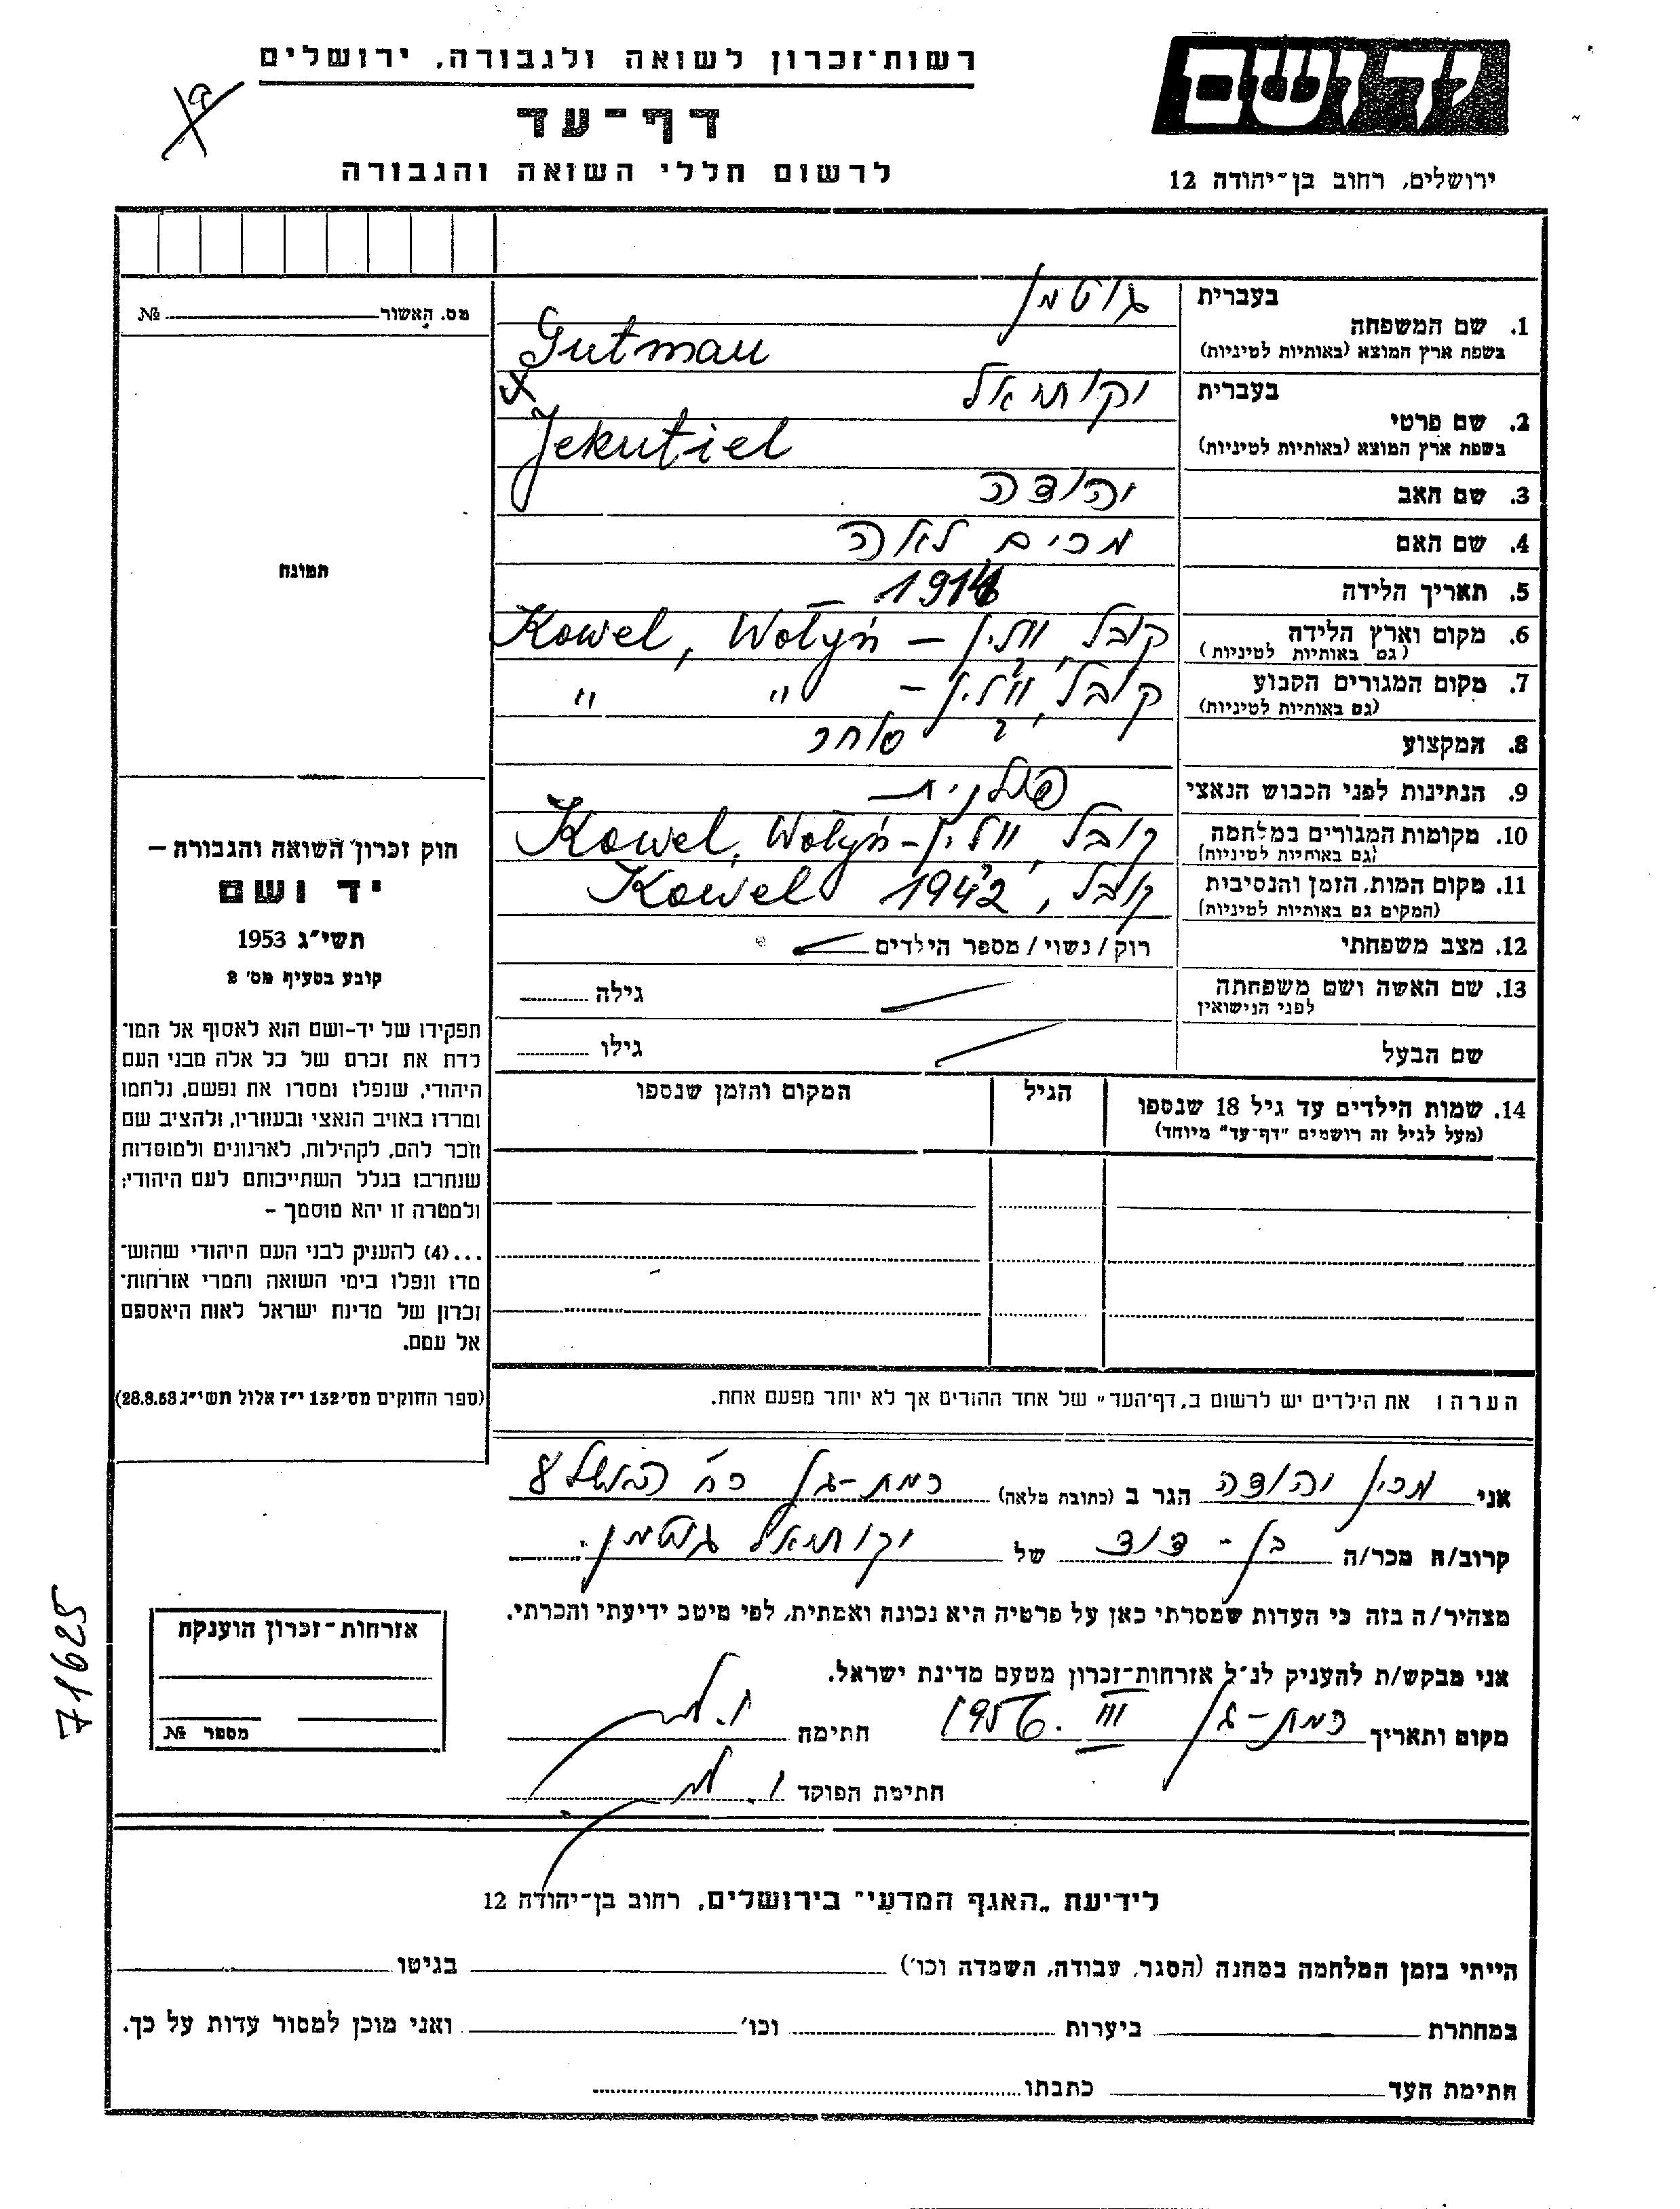 רשות־זכרון לשואה ולגבורה, ירושלים
דף־עד
לרשום חללי השואה והגבורה
יד ושם
ירושלים, רחוב בן־יהודה 12
מס. האשור № 
1. שם המשפחה בעברית גוטמן
בשפת ארץ המוצא (באותיות לטיניות) Gutman
2. שם פרטי בעברית יקותיאל
בשפת ארץ המוצא (באותיות לטיניות) Jekutiel
3. שם האב יהודה
4. שם האם מרים לאה
5. תאריך הלידה
6. מקום וארץ הלידה (גם באותיות לטיניות) קובל, ווילין – Kowel, Wołyń
7. מקום המגורים הקבוע (גם באותיות לטיניות) קובל, ווילין – " "
8. המקצוע סוחר
9. הנתינות לפני הכבוש הנאצי פולנית
10. מקומות המגורים במלחמה (גם באותיות לטיניות) קובל, ווילין – Kowel, Wołyń
11. מקום המות, הזמן והנסיבות (המקום גם באותיות לטיניות) קובל, 1942 Kowel
12. מצב משפחתי רוק/נשוי/מספר הילדים
13. שם האשה ושם משפחתה לפני הנישואין גילה
שם הבעל גילו
14. שמות הילדים עד גיל 18 שנספו הגיל המקום והזמן שנספו
(מעל לגיל זה רושמים "דף־עד" מיוחד)
תמונה
חוק זכרון השואה והגבורה –
יד ושם
תשי"ג 1953
קובע בסעיף מס' 2
תפקידו של יד-ושם הוא לאסוף אל המו־
לדת את זכרם של כל אלה מבני העם
היהודי, שנפלו ומסרו את נפשם, נלחמו
ומרדו באויב הנאצי ובעוזריו, ולהציב שם
וזכר להם, לקהילות, לארגונים ולמוסדות
שנחרבו בגלל השתייכותם לעם היהודי;
ולמטרה זו יהא מוסמך –
...(4) להעניק לבני העם היהודי שהוש־
מדו ונפלו בימי השואה והמרי אזרחות־
זכרון של מדינת ישראל לאות היאספם
אל עמם.
(ספר החוקים מס' 132 י"ז אלול תשי"ג 28.8.53)
הערה: את הילדים יש לרשום ב„דף־העד" של אחד ההורים אך לא יותר מפעם אחת.
אני יהודה הגר ב (כתובה מלאה) רמת-גן
קרוב/ה מכר/ה בן-דוד של יקותיאל גוטמן.
מצהיר/ה בזה כי העדות שמסרתי כאן על פרטיה היא נכונה ואמתית, לפי מיטב ידיעתי והכרתי.
אני מבקש/ת להעניק לנ"ל אזרחות־זכרון מטעם מדינת ישראל.
מקום ותאריך רמת-גן III. 1956 חתימה
חתימת הפוקד
אזרחות־זכרון הוענקה
מספר №
71625
לידיעת „האגף המדעי" בירושלים, רחוב בן־יהודה 12
הייתי בזמן המלחמה במחנה (הסגר, עבודה, השמדה וכו') בגיטו
במחתרת ביערות וכו' ואני מוכן למסור עדות על כך.
חתימת העד כתבתו